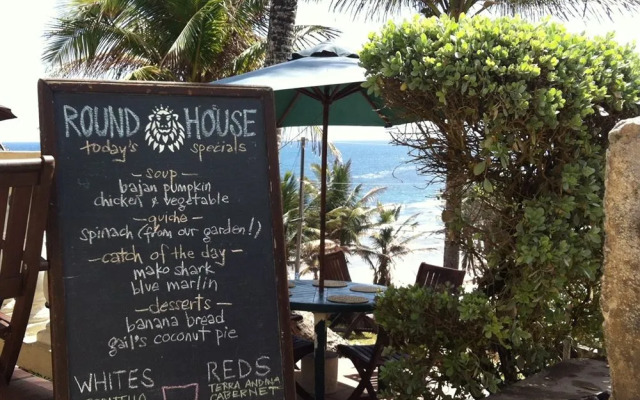 ROUND HOUSE
today's specials
— soup —
bajan pumpkin
chicken & vegetable
— quiche —
spinach (from our garden!)
— catch of the day —
mako shark
blue marlin
— desserts —
banana bread
gail's coconut pie
WHITES
REDS
TERRA ANDINA
CABERNET